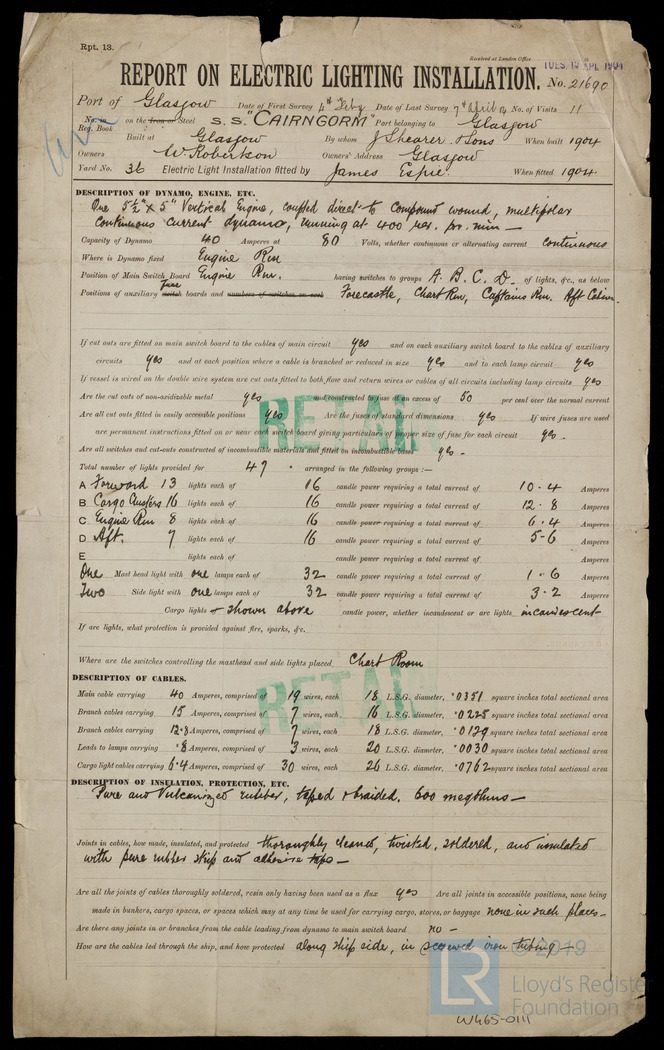 Rpt. 13.
Received at London Office
TUES. 19 APL 1904
REPORT ON ELECTRIC LIGHTING INSTALLATION. No. 21690
Port of Glasgow Date of First Survey 4th Feby Date of Last Survey 7th April 04 No. of Visits 11
No. in Reg. Book on the Iron or Steel S.S. "CAIRNGORM" Port belonging to Glasgow
Built at Glasgow By whom J Shearer & Sons When built 1904
Owners W Robertson Owners' Address Glasgow
Yard No. 36 Electric Light Installation fitted by James Espie When fitted 1904
DESCRIPTION OF DYNAMO, ENGINE, ETC.
One 5½" x 5" Vertical Engine, coupled direct to Compound wound, multipolar
continuous current dynamo, running at 400 rev. pr. min —
Capacity of Dynamo 40 Amperes at 80 Volts, whether continuous or alternating current continuous
Where is Dynamo fixed Engine Rm
Position of Main Switch Board Engine Rm. having switches to groups A. B. C. D. of lights, &c., as below
Positions of auxiliary switch Fuse boards and numbers of switches on each Forecastle, Chart Rm, Captains Rm. Aft Cabin.
If cut outs are fitted on main switch board to the cables of main circuit yes and on each auxiliary switch board to the cables of auxiliary
circuits yes and at each position where a cable is branched or reduced in size yes and to each lamp circuit yes
If vessel is wired on the double wire system are cut outs fitted to both flow and return wires or cables of all circuits including lamp circuits yes
Are the cut outs of non-oxidizable metal yes and constructed to fuse at an excess of 50 per cent over the normal current
Are all cut outs fitted in easily accessible positions yes Are the fuses of standard dimensions yes If wire fuses are used
are permanent instructions fitted on or near each switch board giving particulars of proper size of fuse for each circuit yes.
Are all switches and cut-outs constructed of incombustible materials and fitted on incombustible bases yes.
RETAIN
Total number of lights provided for 47 arranged in the following groups :—
A Forward 13 lights each of 16 candle power requiring a total current of 10.4 Amperes
B Cargo Clusters 16 lights each of 16 candle power requiring a total current of 12.8 Amperes
C Engine Rm 8 lights each of 16 candle power requiring a total current of 6.4 Amperes
D Aft. 7 lights each of 16 candle power requiring a total current of 5.6 Amperes
E lights each of candle power requiring a total current of Amperes
One Mast head light with one lamps each of 32 candle power requiring a total current of 1.6 Amperes
Two Side light with one lamps each of 32 candle power requiring a total current of 3.2 Amperes
Cargo lights of shown above candle power, whether incandescent or arc lights incandescent
If arc lights, what protection is provided against fire, sparks, &c.
Where are the switches controlling the masthead and side lights placed Chart Room
DESCRIPTION OF CABLES.
RETAIN
Main cable carrying 40 Amperes, comprised of 19 wires, each 18 L.S.G. diameter, .0351 square inches total sectional area
Branch cables carrying 15 Amperes, comprised of 7 wires, each 16 L.S.G. diameter, .0225 square inches total sectional area
Branch cables carrying 12.8 Amperes, comprised of 7 wires, each 18 L.S.G. diameter, .0129 square inches total sectional area
Leads to lamps carrying .8 Amperes, comprised of 3 wires, each 20 L.S.G. diameter, .0030 square inches total sectional area
Cargo light cables carrying 6.4 Amperes, comprised of 30 wires, each 26 L.S.G. diameter, .0762 square inches total sectional area
DESCRIPTION OF INSULATION, PROTECTION, ETC.
Pure and Vulcanized rubber, taped & braided. 600 megohms —
Joints in cables, how made, insulated, and protected thoroughly cleaned, twisted, soldered, and insulated
with pure rubber strip and adhesive tape —
Are all the joints of cables thoroughly soldered, resin only having been used as a flux yes Are all joints in accessible positions, none being
made in bunkers, cargo spaces, or spaces which may at any time be used for carrying cargo, stores, or baggage none in such places —
Are there any joints in or branches from the cable leading from dynamo to main switch board no —
How are the cables led through the ship, and how protected along ship side, in screwed iron tubing —
© 2019
LR Lloyd's Register
Foundation
W465-0111